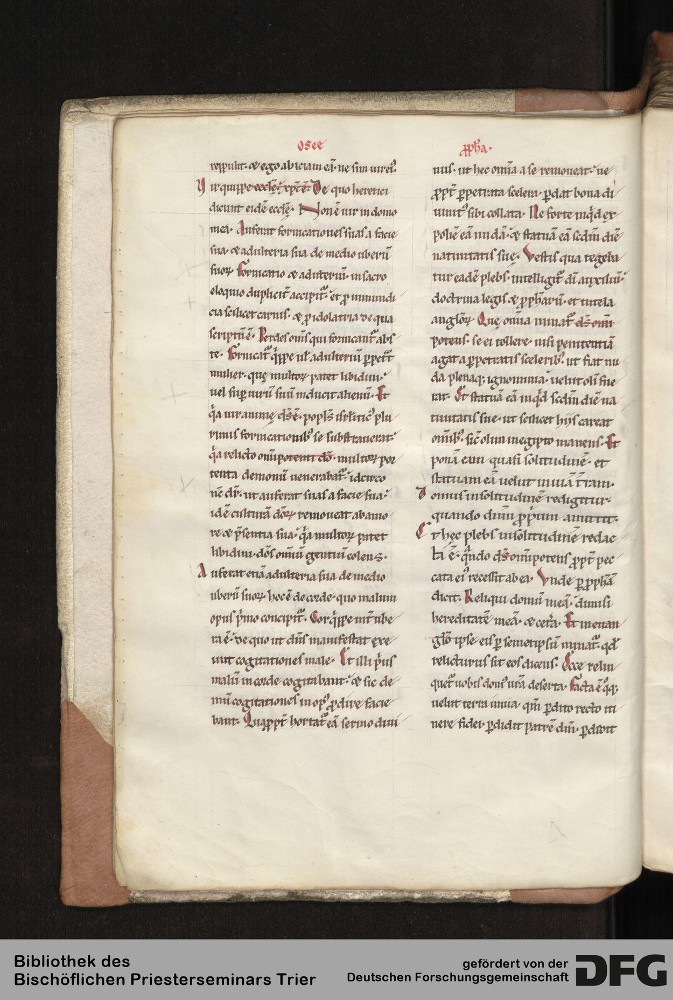 osee
ꝓph̄a.
reppulit. et ego abiciam eā. ne sim uir eiꝰ.
Vir quippe ecclesię xp̄c ē. De quo heretici
dicunt eidē ecclę. Non ē uir in domo
mea. Auferat fornicationes suas a facie
sua. et adulteria sua de medio uberū
suoꝝ. Fornicatio et adulteriū. in sacro
eloquio dupliciter accipit᷑. et ꝓ inmundi
cia scilicet carnis. et ꝓ idolatria. de qua
scriptū ē. Perdes om̄s qui fornicant᷑ abs
te. Fornicat᷑ q̇ppe uł adulteriū ꝑpetrat
mulier. quę multoꝝ patet libidini.
uel suꝑ uirū suū inducit alienū. Et
q̇a uir animę ds̄ ē. popłs isrl̄iticꝰ plu
rimis fornicationibꝰ se substrauerat.
q̇a relicto omīpotenti dō. multoꝝ por
tenta demonū venerabat᷑. idcirco
nc̄ dr̄. ut auferat suas a facie sua.
idē culturā dōꝝ. remoueat ab amo
re et p̄sentia sua. q̇a multoꝝ patet
libidini. dōs omniū gentiū colens.
Auferat etiā adulteria sua de medio
uberū suoꝝ. hoc ē de corde. quo malum
opus ṗmo concipit᷑. Cor q̇ppe int̄ ube
ra ē. de quo ut dn̄s manifestat exe
unt cogitationes male. Et illi ṗus
malū in corde cogitabant. et sic de
mū cogitationes in opꝰ ꝓdire facie
bant. Quapp̄t hortat᷑ eā sermo diui
nus. ut hec om̄ia a se remoueat. ne
ꝓpt̄ ꝑpetrata scelera. ꝑdat bona di
uinitꝰ sibi collata. Ne forte inq̇d ex
poliē eā nudā. et statuā eā scdm̄ diē
natiuitatis suę. Vestis qua tegeba
tur eadē plebs. intelligit᷑ dī auxiliū.
doctrina legis et ꝓph̄arū. et tutela
angłoꝝ. Quę om̄ia minat᷑ ds̄ omī
potens. se ei tollere. nisi penitentiā
agat a ꝑpetratis sceleribꝰ. ut fiat nu
da plenaq; ignominia. uelut olī fue
rat. Et statuā eā inquid scdm̄ diē na
tiuitatis sue. ut scilicet hijs careat
om̄ibꝰ. sic̄ olim in egipto manens. Et
ponā eam quasi solitudinē. et
statuam eā velut inuiā terram.
Domus in solitudinē redigitur.
quando dn̄m ꝓṗum amittit.
Et hęc plebs in solitudinē redac
ta ē. q̇ndo ds̄ om̄ipotens ꝓpt̄ pec
cata eiꝰ recessit ab ea. Vnde ꝑ ꝓph̄ā
dicit. Reliqui domū meā. dimisi
hereditatē meā. et cet̄a. Et in euan
głio ipse eis ꝑ semetipsū minat᷑. qd̓
relicturus sit eos dicens. Ecce relin
quet᷑ uobis domꝰ ur̄a deserta. Facta ē q̇q;
uelut terra inuia. qm̄ ꝑdito recto iti
nere fidei. ꝑdidit patrē dm̄. ꝑdidit
Bibliothek des
Bischöflichen Priesterseminars Trier
gefördert von der
Deutschen Forschungsgemeinschaft
DFG